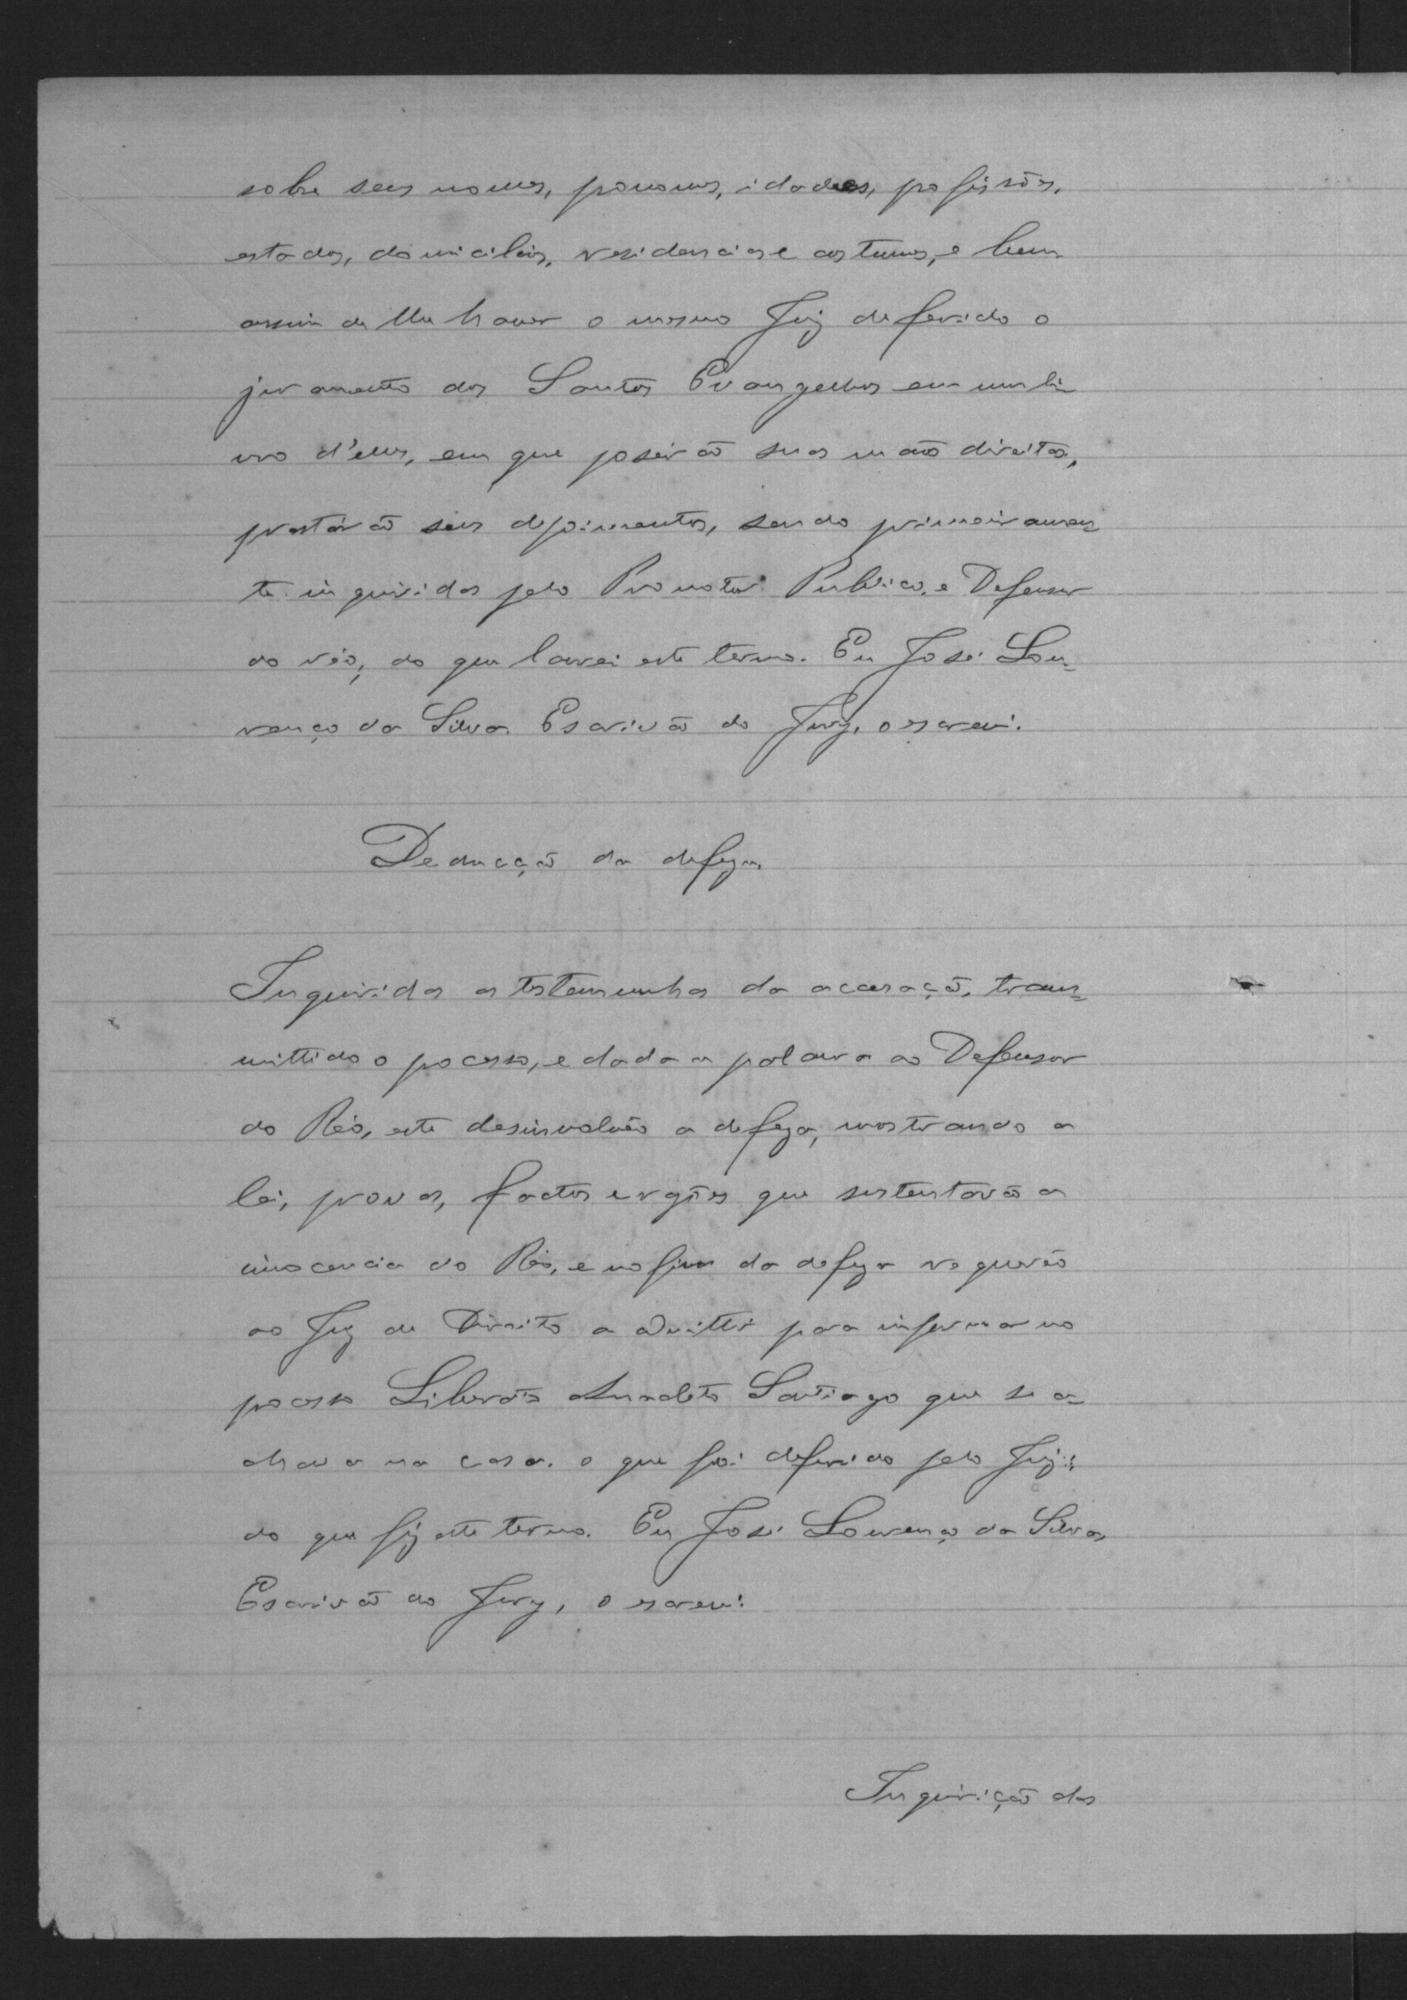 sobre seus nomes, pronomes, idades, profissões,
estados, domicilios, residencias e costumes, e bem
assim de lhe haver o mesmo Juiz deferido o
juramento dos Santos Evangelhos em um li-
vro d'elles, em que poserão suas mãos direitas,
prestárão seus depoimentos, sendo primeiramen-
te inquiridas pelo Promotor Publico, e Defensor
do réo, do que lavrei este termo. Eu José Lou-
renço da Silva Escrivão do Jury, o escrevi.
Deducção da defeza.
Inquiridas as testemunhas da accusação, trans-
mittido o processo, e dada a palavra ao Defensor
do Réo, este desinvolvêo a defeza, mostrando a
lei, provas, factos e rasões que sustentavão a
innocencia do Réo, e no fim da defeza requerêo
ao Juiz de Direito a admittir para informar no
processo Liberato Anacleto Santiago que se a-
chava na casa. o que foi deferido pelo Juiz:
do que fiz este termo. Eu José Lourenço da Silva,
Escrivão do Jury, o escrevi.
Inquirição das